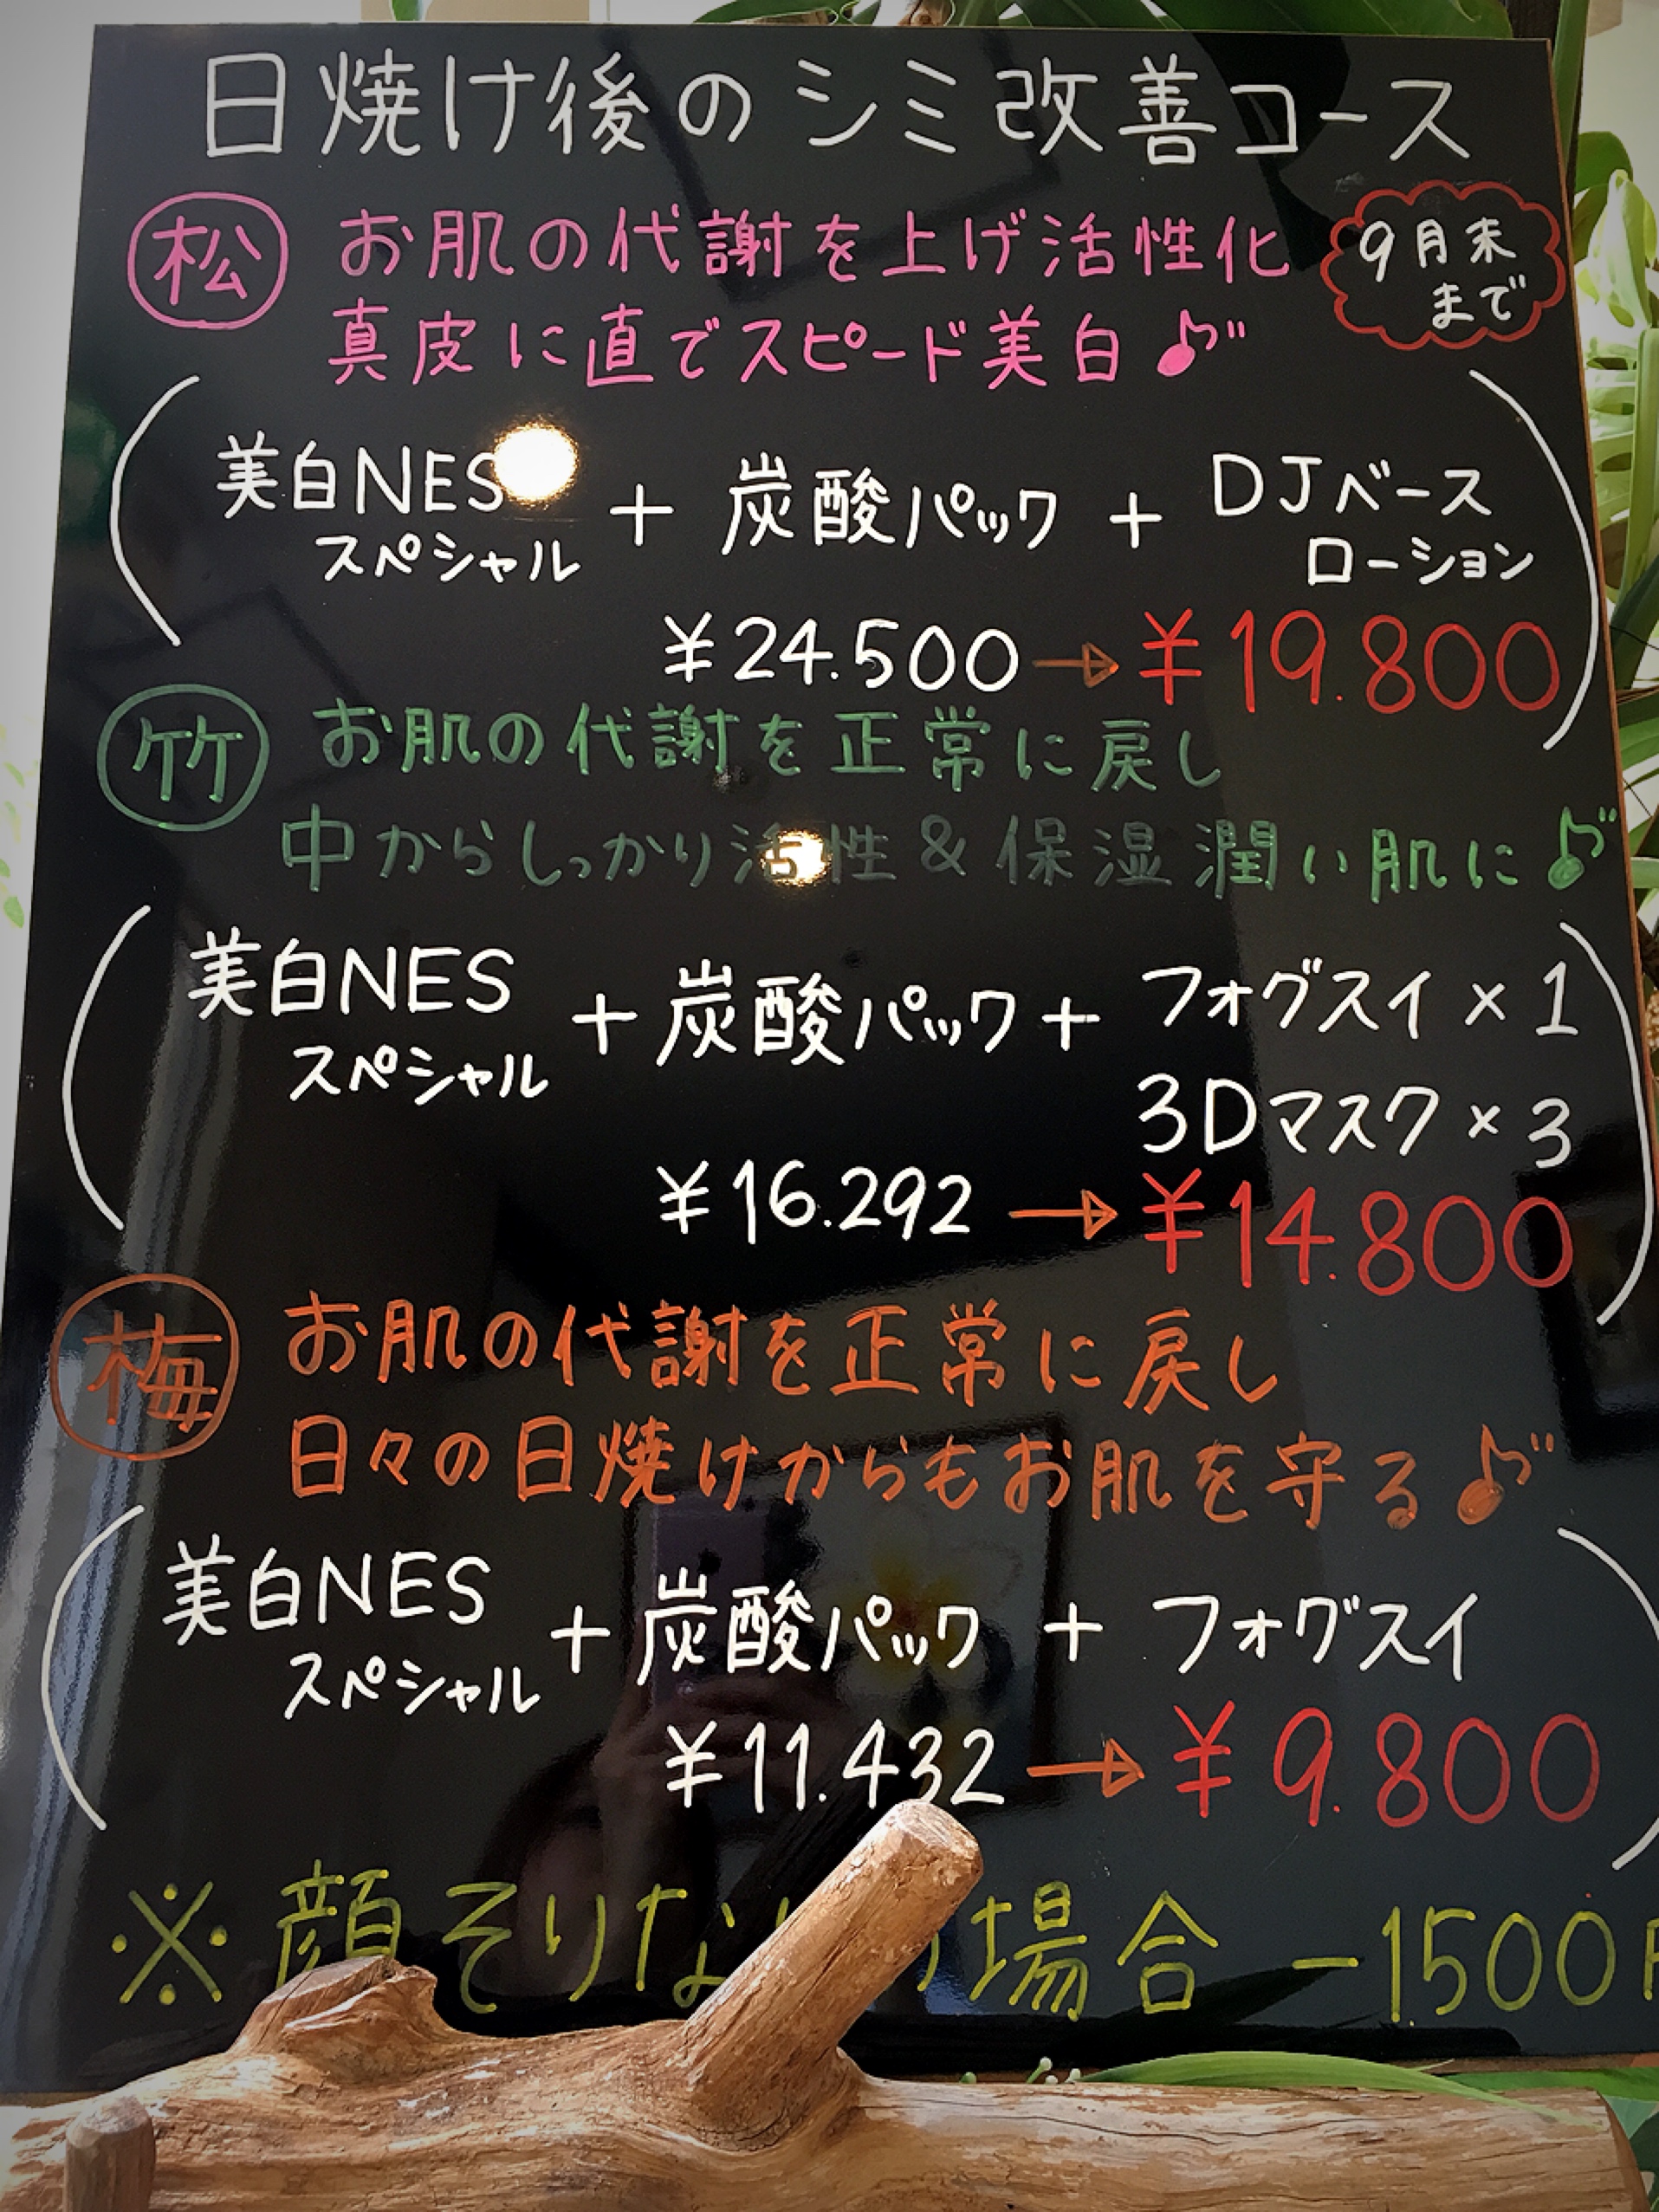 日焼け後のシミ改善コース
松 お肌の代謝を上げ活性化
真皮に直でスピード美白♪
9月末
まで
美白NES
スペシャル
+ 炭酸パック +
DJベース
ローション
¥24.500→¥19.800
竹 お肌の代謝を正常に戻し
中からしっかり活性&保湿潤い肌に♪
美白NES
スペシャル
+炭酸パック+
フォグスイ×1
3Dマスク×3
¥16.292→¥14.800
梅 お肌の代謝を正常に戻し
日々の日焼けからもお肌を守る♪
美白NES
スペシャル
+炭酸パック + フォグスイ
¥11.432→¥9.800
※顔そりな 場合 -1500